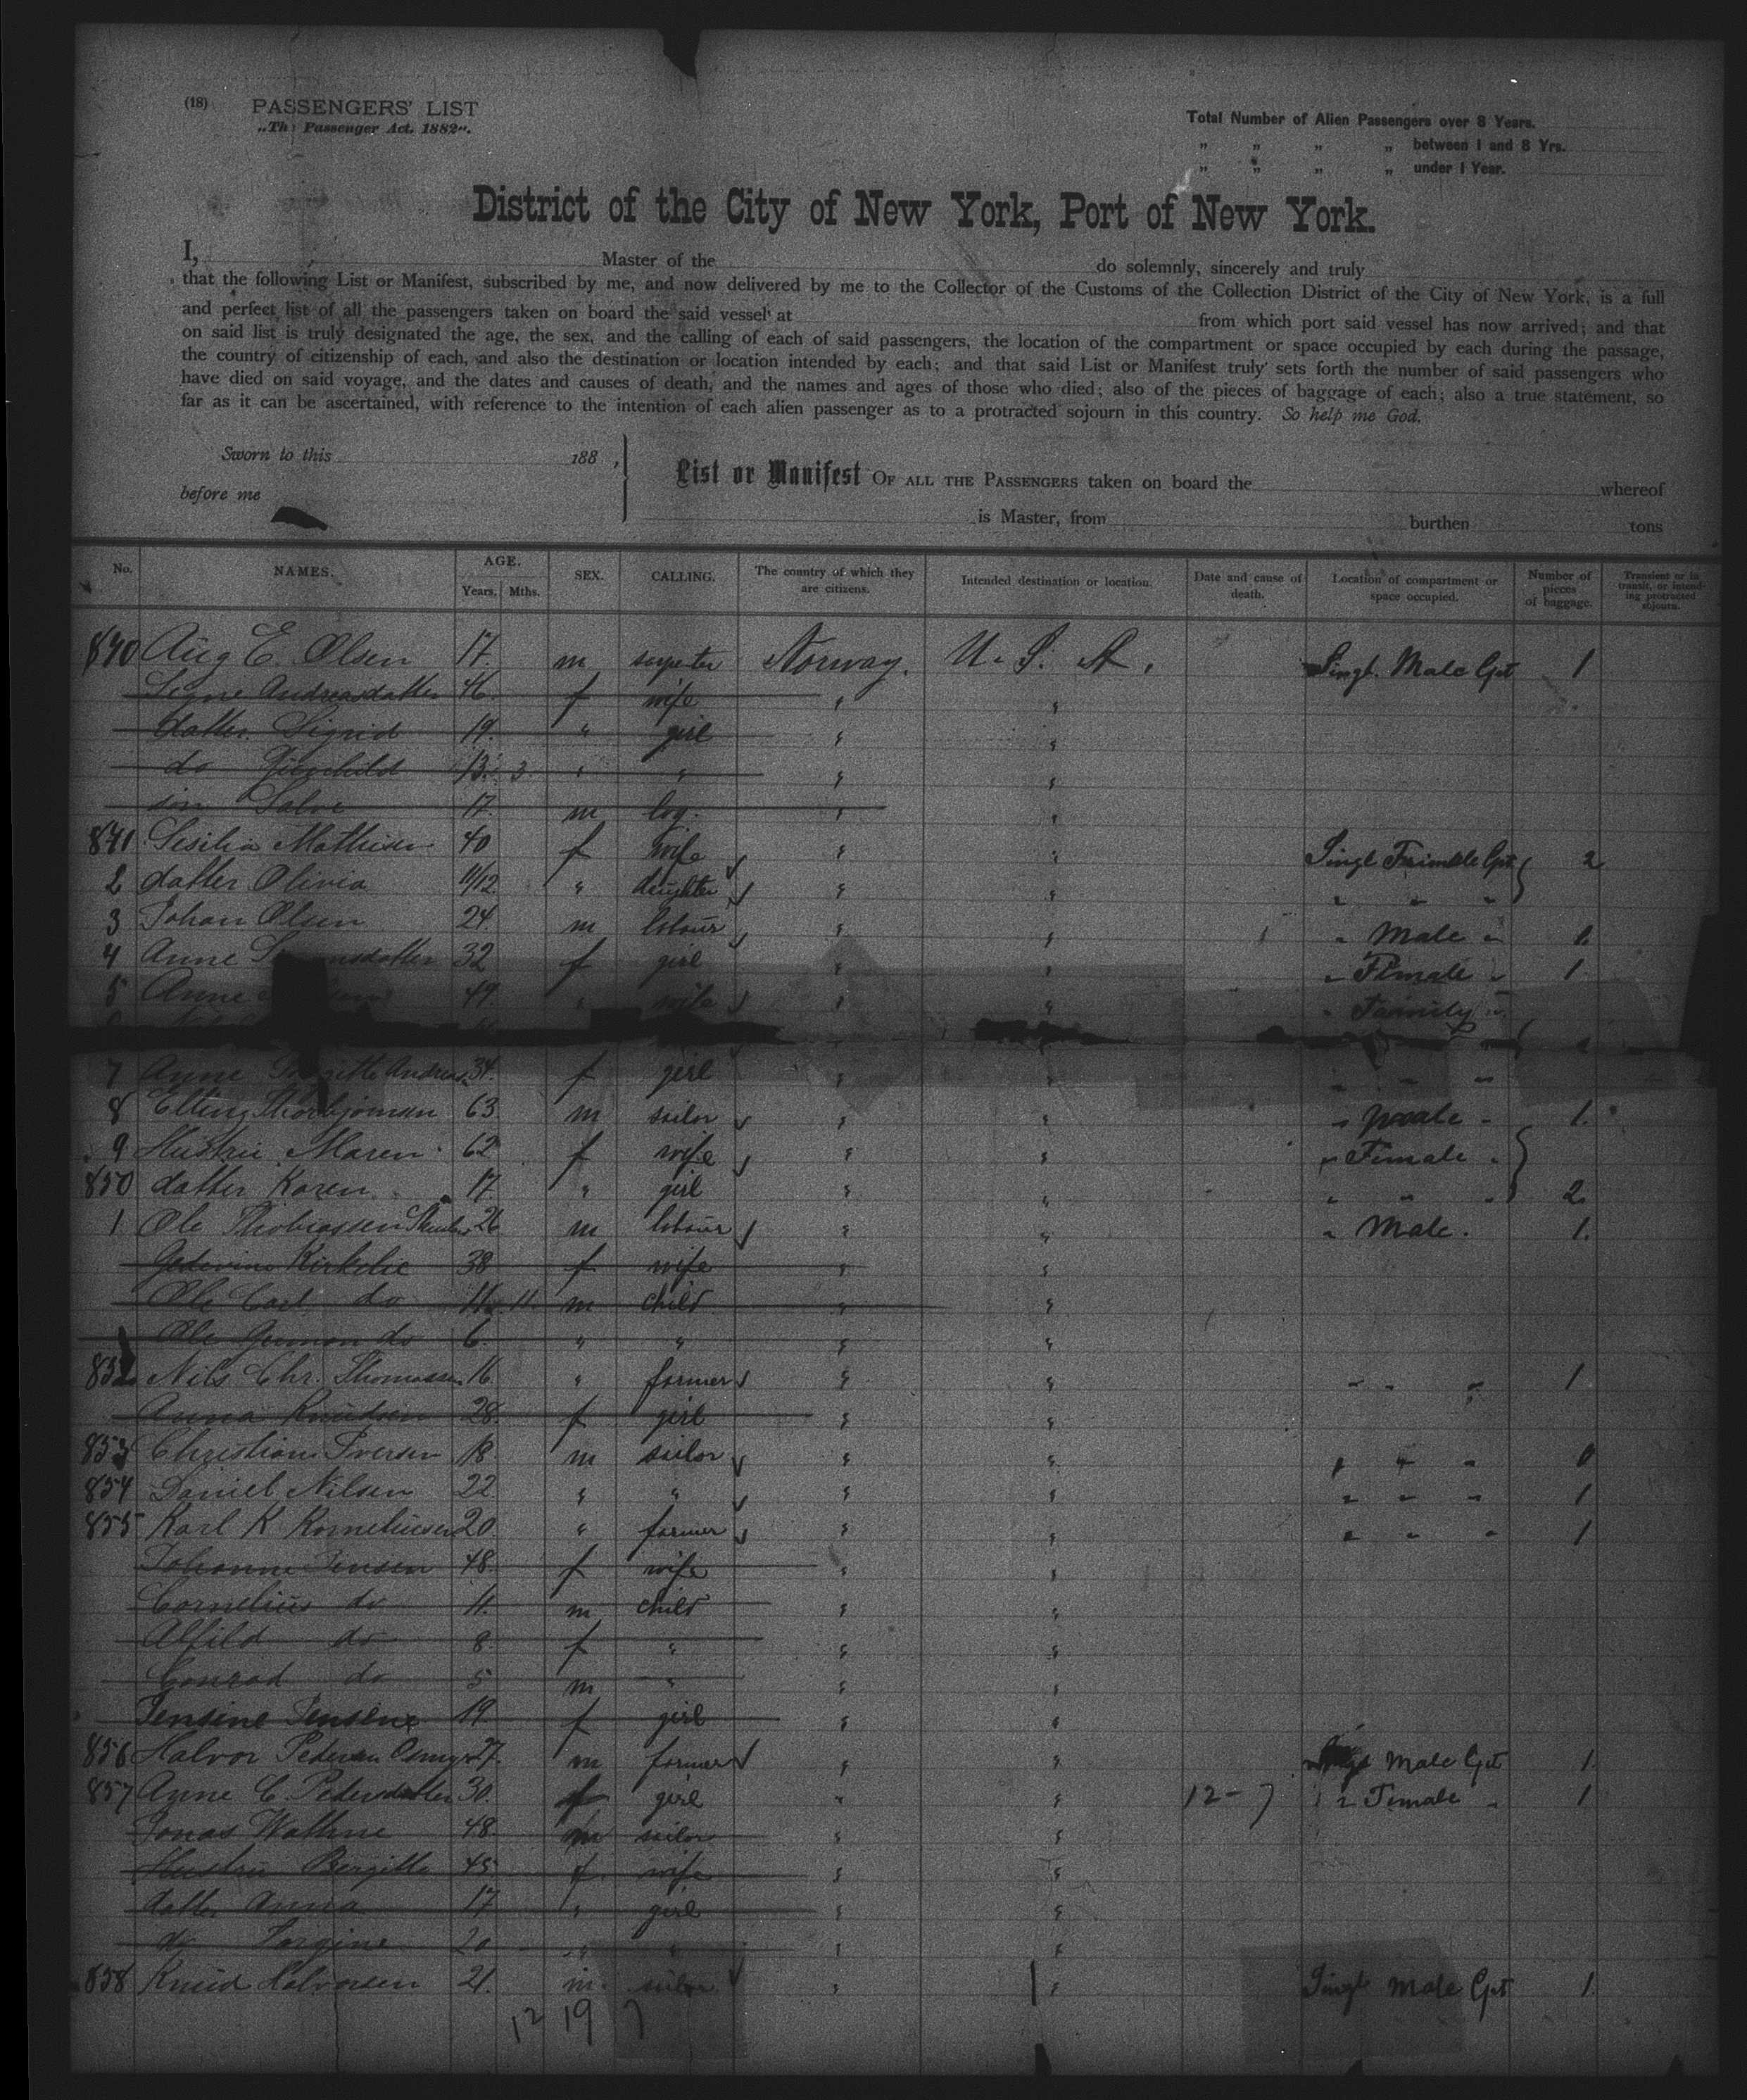 (18) PASSENGERS' LIST
„The Passenger Act. 1882".
Total Number of Alien Passengers over 8 Years.
„ „ „ „ between 1 and 8 Yrs.
„ „ „ „ under 1 Year.
District of the City of New York, Port of New York.
I, Master of the do solemnly, sincerely and truly
that the following List or Manifest, subscribed by me, and now delivered by me to the Collector of the Customs of the Collection District of the City of New York, is a full
and perfect list of all the passengers taken on board the said vessel at from which port said vessel has now arrived; and that
on said list is truly designated the age, the sex, and the calling of each of said passengers, the location of the compartment or space occupied by each during the passage,
the country of citizenship of each, and also the destination or location intended by each; and that said List or Manifest truly sets forth the number of said passengers who
have died on said voyage, and the dates and causes of death, and the names and ages of those who died; also of the pieces of baggage of each; also a true statement, so
far as it can be ascertained, with reference to the intention of each alien passenger as to a protracted sojourn in this country. So help me God.
Sworn to this 188 ,
before me
List or Manifest OF ALL THE PASSENGERS taken on board the whereof
is Master, from burthen tons
No. NAMES. AGE. Years. Mths. SEX. CALLING. The country of which they are citizens. Intended destination or location. Date and cause of death. Location of compartment or space occupied. Number of pieces of baggage. Transient or in transit, or intending protracted sojourn.
840 Aug E. Olsen 17. m Norway. U. S. A. Singl. Male Cpt 1
Signe Andreasdatter 46 f wife " "
datter Sigrid 19. " girl " "
do 13. 3 " " " "
son Salve 17. m " "
841 Sesilia Mathisen 40 f wife " " Singl Female Cpt 2
2 datter Olivia 11/12 " daughter " " " " "
3 Johan Olsen 24. m labour " " " Male "
4 Anne 32 f girl " " " Female " 1
5 Anne 49. " wife " " " Family "
7 Anne Andreas 34. f girl " " " " "
8 63. m sailor " " " Male " 1.
9 Hustru Maren 62 f wife " " " Female "
850 datter Karen 17. " girl " " " " " 2.
1 Ole Thobiassen 26 m labour " " " Male. 1.
Kirkelie 38 f wife " "
Ole Carl do 11. m child " "
Ole do 6. " " " "
852 Nils Chr. Thomassen 16. " farmer " " " " " 1
Anna Knudsen 28. f girl " "
853 Christian Iversen 18. m sailor " " " " " 0
854 Daniel Nilsen 22. " " " " " " " 1
855 Karl K Korneliusen 20. " farmer " " " " " 1
Johanne Jensen 48. f wife " "
Cornelius do 11. m child " "
Alfild do 8. f " " "
Conrad do 5 m " " "
Jensine Jensen 19. f girl " "
856 Halvor Pedersen 27. m farmer " " Male Cpt 1.
857 Anne C. Pedersdatter 30. f girl " " 12 - 7 " Female " 1
Jonas Wathne 48. m sailor " "
Hustru Bergitte 45 f wife " "
datter Anna 17 " girl " "
do 20 " " " "
858 Knud Halvorsen 21. m sailor " " Singl Male Cpt 1.
12 19 7